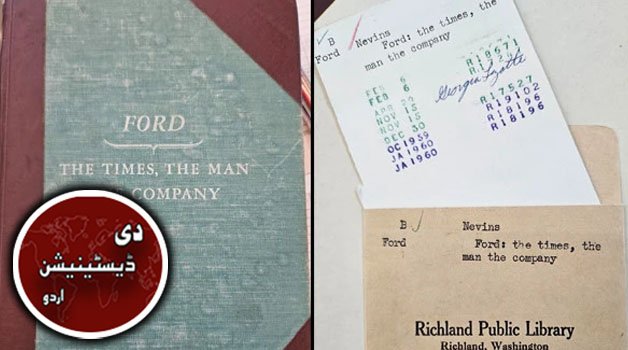 FORD
THE TIMES, THE MAN
COMPANY
دی
ڈیسٹینیشن
اردو
B Nevins
Ford Ford: the times, the
man the company
FEB 6
APR 29
NOV 15
NOV 15
DEC 30
OC 1959
JA 1960
JA 1960
R19671
R17527
R19102
R18196
R18196
B Nevins
Ford Ford: the times, the
man the company
Richland Public Library
Richland, Washington